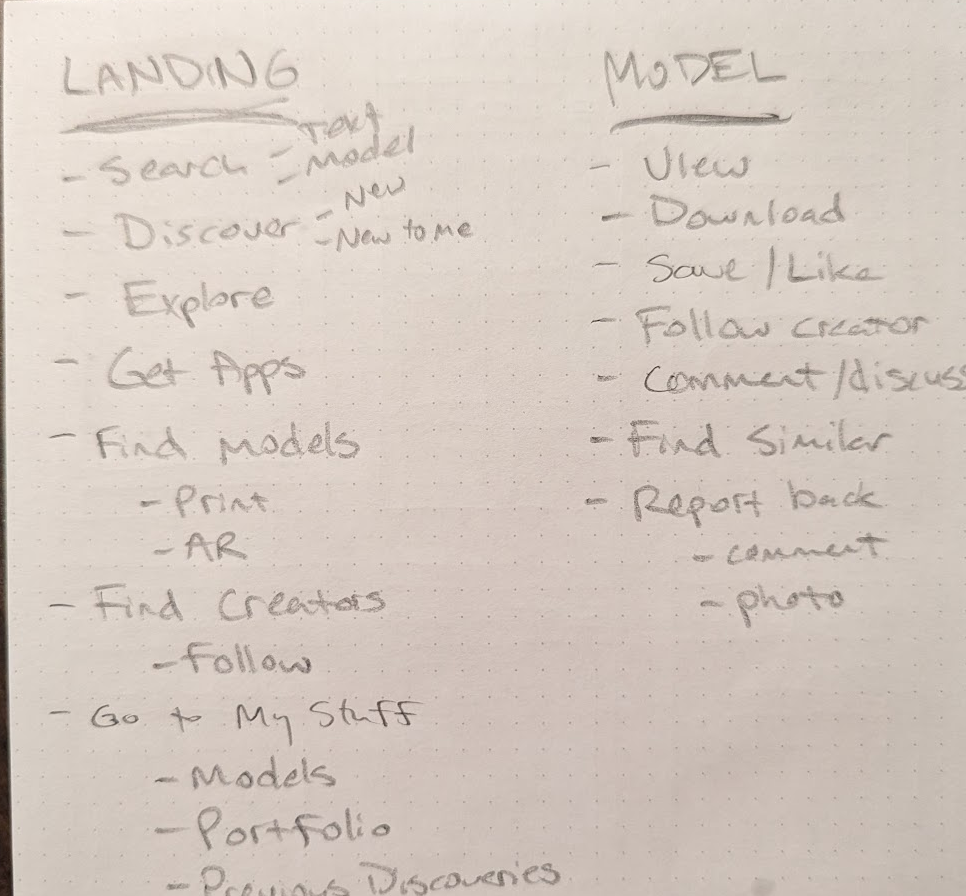 LANDING
- Search - Text
- Model
- Discover - New
- New to me
- Explore
- Get Apps
- Find models
- Print
- AR
- Find Creators
- Follow
- Go to My Stuff
- Models
- Portfolio
- Previous Discoveries
MODEL
- View
- Download
- Save / Like
- Follow creator
- Comment/discuss
- Find Similar
- Report back
- comment
- photo